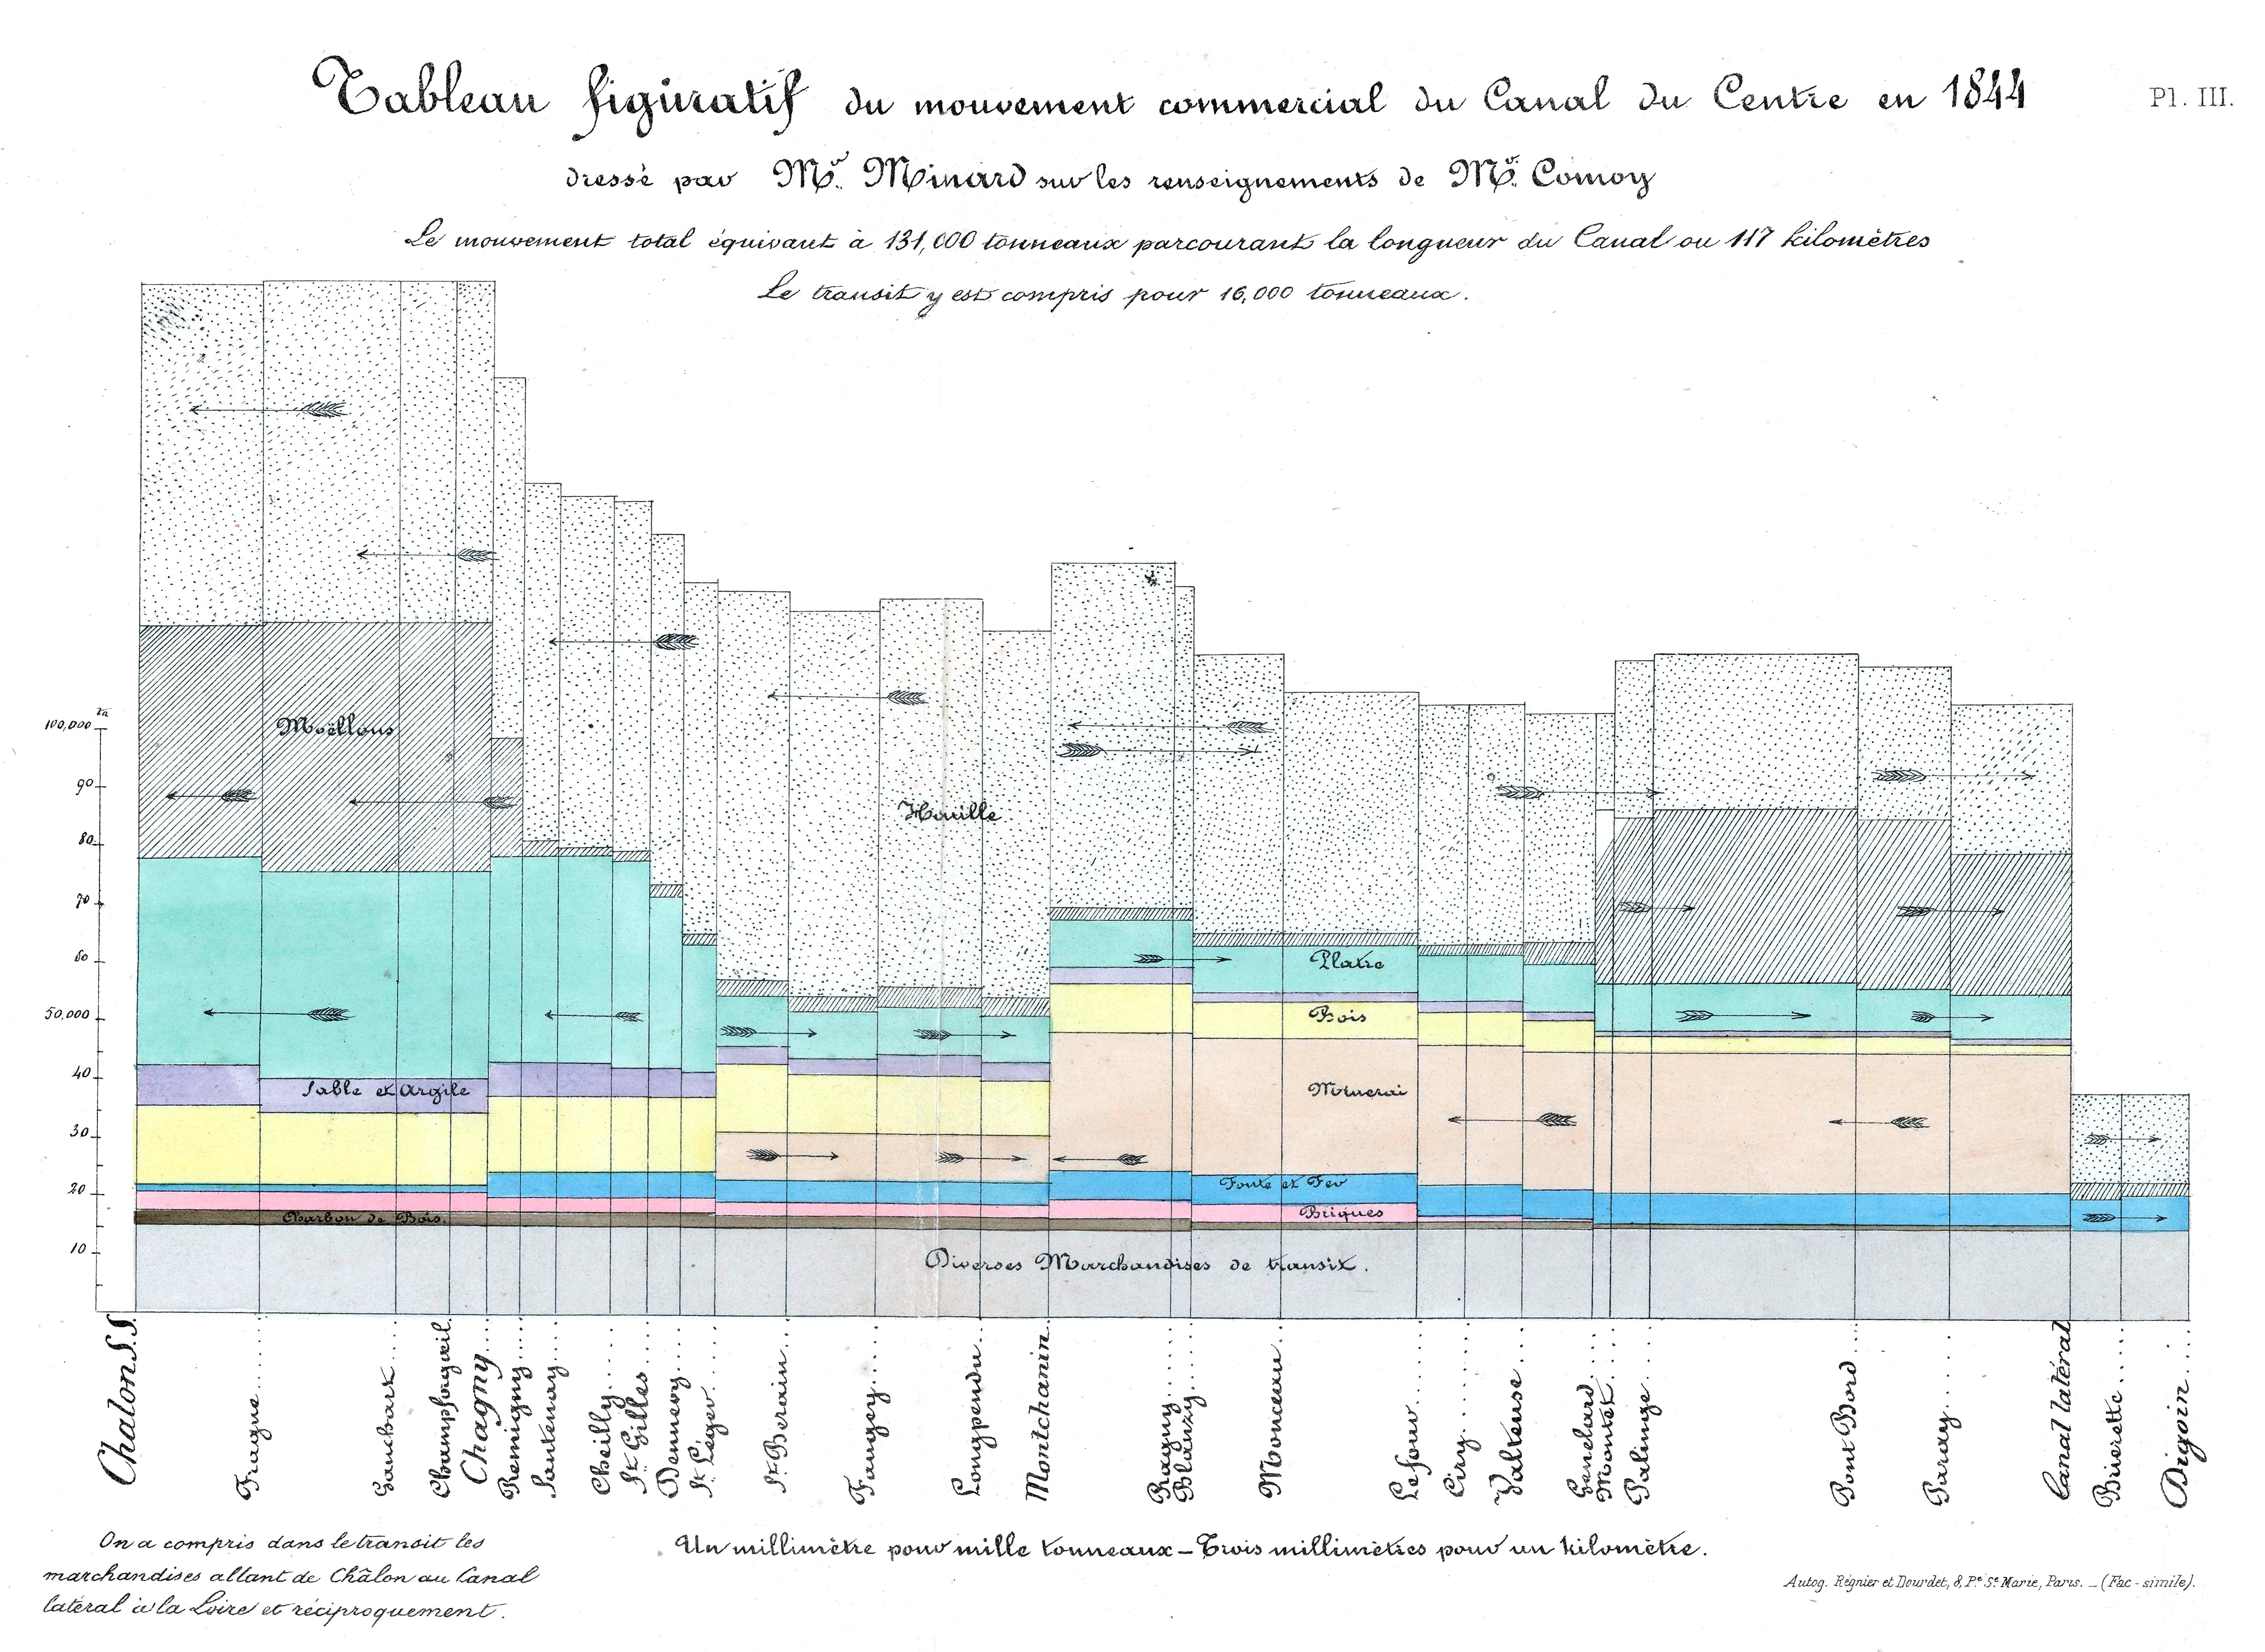 Tableau figuratif du mouvement commercial du Canal du Centre en 1844
Pl. III.
dressé par Mr. Minard sur les renseignements de Mr. Comoy
Le mouvement total équivaut à 131,000 tonneaux parcourant la longueur du Canal ou 117 kilomètres
Le transit y est compris pour 16,000 tonneaux.
100,000 tx
90
80
70
60
50,000
40
30
20
10
Moëllons
Houille
Platre
Sable et Argile
Bois
Minerai
Fonte et Fer
Briques
Charbon de Bois.
Diverses Marchandises de transit.
Chalon S.S.
Fragne....
Gaubart....
Champforgueil
Chagny...
Remigny....
Santenay....
Cheilly....
St. Gilles....
Dennevy....
St. Léger....
St. Berain...
Fangey....
Longpendu..
Montchanin..
Ragny....
Blanzy....
Monceau..
Lefour....
Ciry......
Valteuse...
Genelard...
Montet....
Palinge...
Pont Bord...
Paray....
Canal latéral
Bierette....
Digoin....
On a compris dans le transit les
marchandises allant de Châlon au Canal
latéral à la Loire et réciproquement.
Un millimètre pour mille tonneaux – Trois millimètres pour un kilomètre.
Autog. Régnier et Dourdet, 8, Pe. Ste. Marie, Paris. _ (Fac-simile).